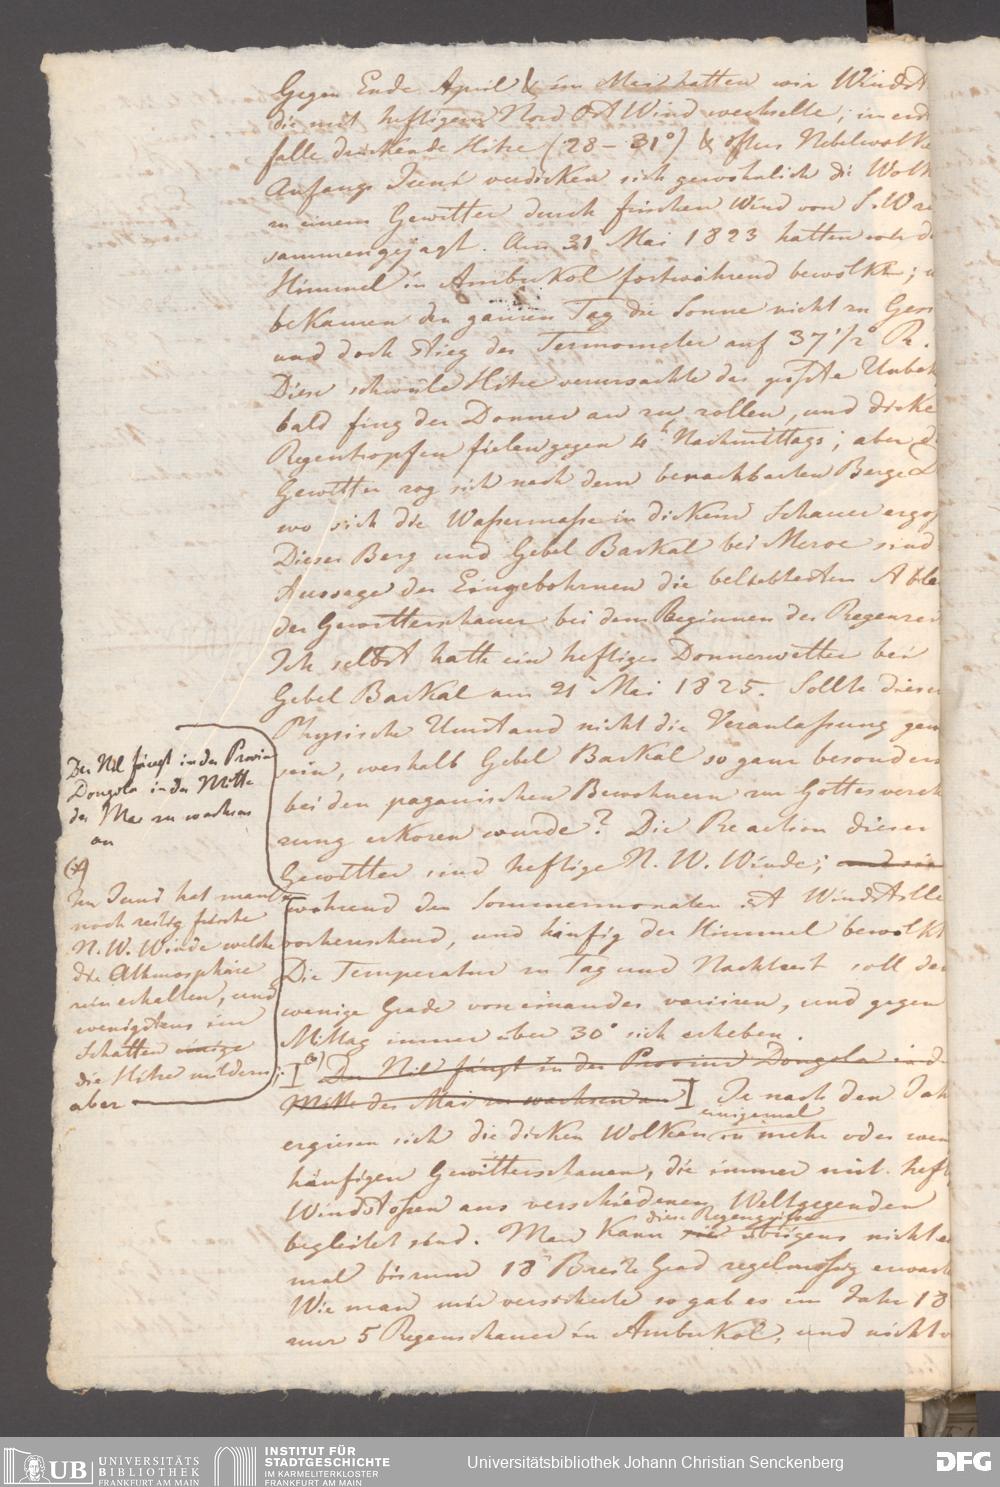 Gegen Ende April & im Mai hatten wir Windst
die mit heftigem Nord Ost Wind wechselte; in erst
falle drückende Hitze (28 – 31°) & öfters Nebelwolke
Anfangs Juni verdicken sich gewöhnlich die Wolk
zu einem Gewitter durch frischen Wind von S.W. zu
sammengejagt. Am 31 Mai 1823 hatten wir de
Himmel in Ambukol fortwährend bewölkt; u
bekamen den ganzen Tag die Sonne nicht zu Gesi
und doch stieg der Termometer auf 37 1/2° R.
Diese schwüle Hitze verursachte das größte Unbeh
bald fing der Donner an zu rollen, und dicke
Regentropfen fielen gegen 4h Nachmittags; aber d
Gewitter zog sich nach dem benachbarten Berge
wo sich die Wassermasse in dickem Schauer ergoß
Dieser Berg und Gebel Barkal bei Meroe sind
Aussage der Eingebohrnen die beliebtesten Able
der Gewitterschauer bei dem Beginnen der Regenzei
Ich selbst hatte ein heftiges Donnerwetter bei
Gebel Barkal am 21 Mai 1825. Sollte dieser
Physische Umstand nicht die Veranlassung gew
sein, weshalb Gebel Barkal so ganz besonders
bei den paganischen Bewohnern zur Gottesverch
rung erkoren wurde? Die Reaction dieser
Gewitter sind heftige N. W. Winde; und sie
während den Sommermonaten ist Windstille
vorherrschend, und häufig der Himmel bewölkt
Die Temperatur zu Tag und Nachtzeit soll der
wenige Grade voneinander variiren, und gegen
Mittag immer über 30° sich erheben.
Der Nil fängt in der Provinz Dongola in d
Mitte des Mai zu wachsen an Je nach den Jah
einigemal
ergiesen sich die dicken Wolken zu mehr oder wen
häufigen Gewitterschauern, die immer mit heft
Windstößen aus verschiedenen Weltgegenden
diese Regengüsse
begleitet sind. Man kann sie übrigens nicht
mal bis zum 18 Breite Grad regelmäßig erwart
Wie man mir versicherte so gab es im Jahr 18
nur 5 Regenschauer in Ambukol, und nicht
Der Nil fängt in der Provinz
Dongola in der Mitte
des Mai zu wachsen
an
Im Juni hat man
noch zeitig frische
N. W. Winde welche
die Athmosphäre
rein erhalten, und
wenigstens im
Schatten einige
die Hitze mildern;
aber
UB UNIVERSITÄTS
BIBLIOTHEK
FRANKFURT AM MAIN
INSTITUT FÜR
STADTGESCHICHTE
IM KARMELITERKLOSTER
FRANKFURT AM MAIN
Universitätsbibliothek Johann Christian Senckenberg
DFG